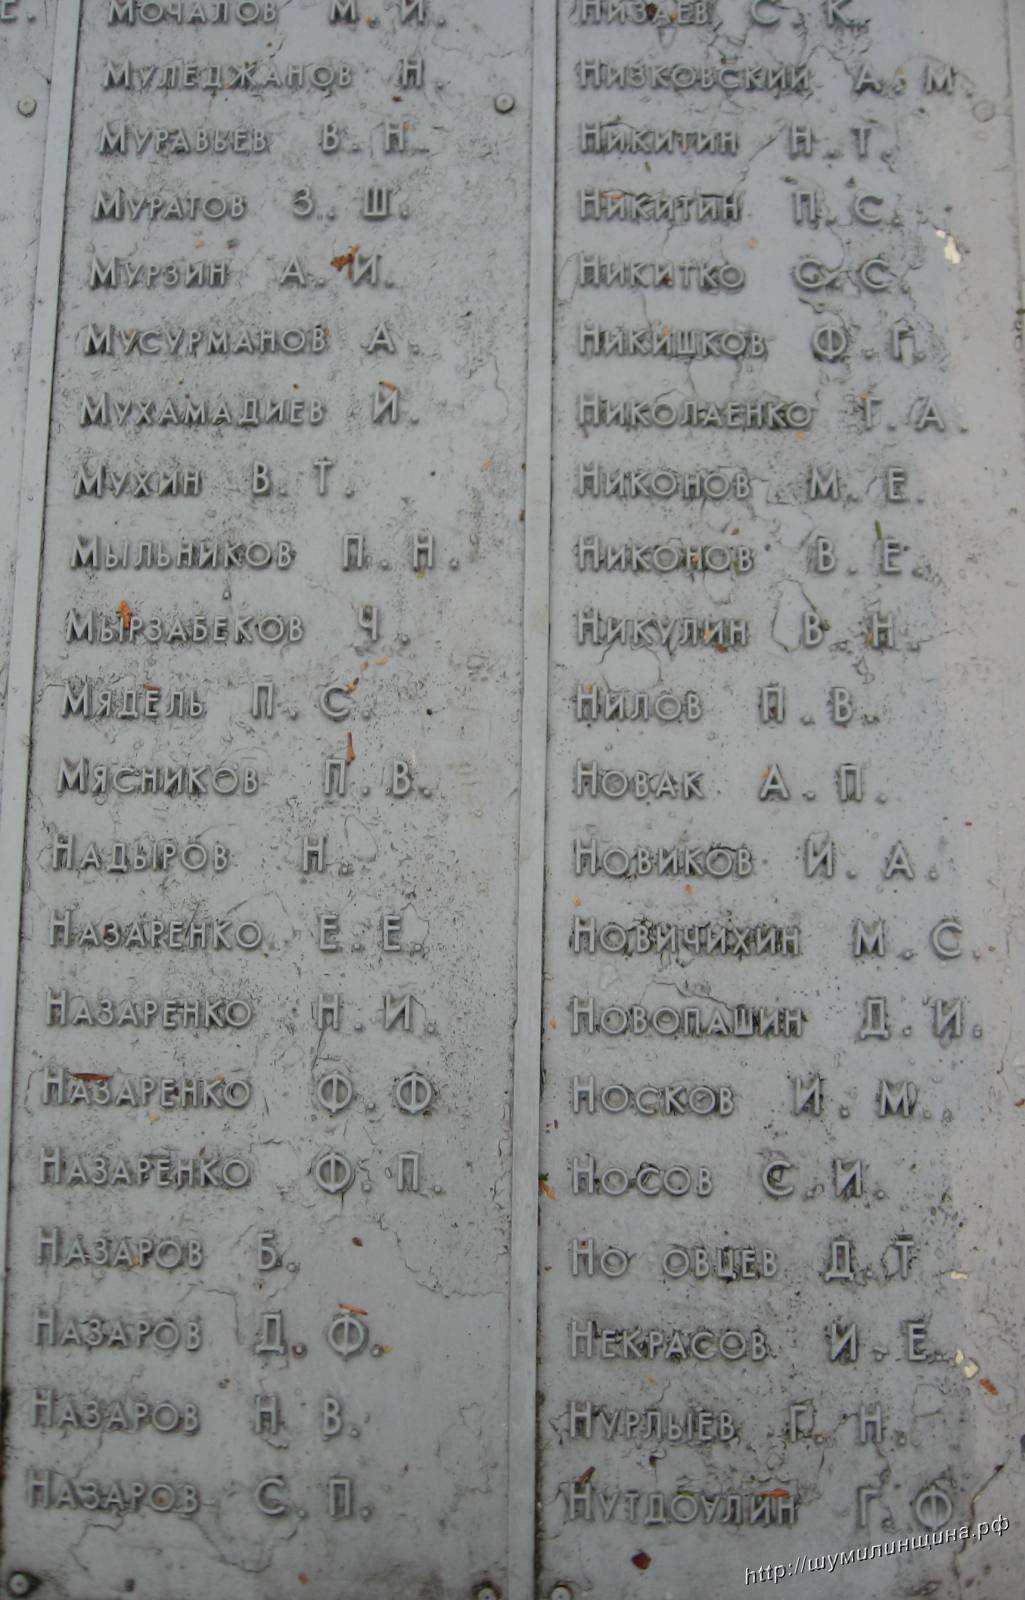 Мочалов М. И.
Муледжанов Н.
Муравьев В. Н.
Муратов З. Ш.
Мурзин А. И.
Мусурманов А.
Мухамадиев И.
Мухин В. Т.
Мыльников П. Н.
Мырзабеков Ч.
Мядель П. С.
Мясников П. В.
Надыров Н.
Назаренко Е. Е.
Назаренко Н. И.
Назаренко Ф. Ф
Назаренко Ф. П.
Назаров Б.
Назаров Д. Ф.
Назаров Н В.
Назаров С. П.
Низаев С. К.
Низковский А. М.
Никитин Н. Т.
Никитин П. С.
Никитко С. С.
Никишков Ф. Г.
Николаенко Г. А.
Никонов М. Е.
Никонов В. Е.
Никулин В. Н.
Нилов П. В.
Новак А. П.
Новиков И. А.
Новичихин М. С.
Новопашин Д. И.
Носков И. М.
Носов С. И.
Но овцев Д. Т
Некрасов И. Е.
Нурлыев Г. Н.
Нутдоулин Г. Ф
http://шумилинщина.рф